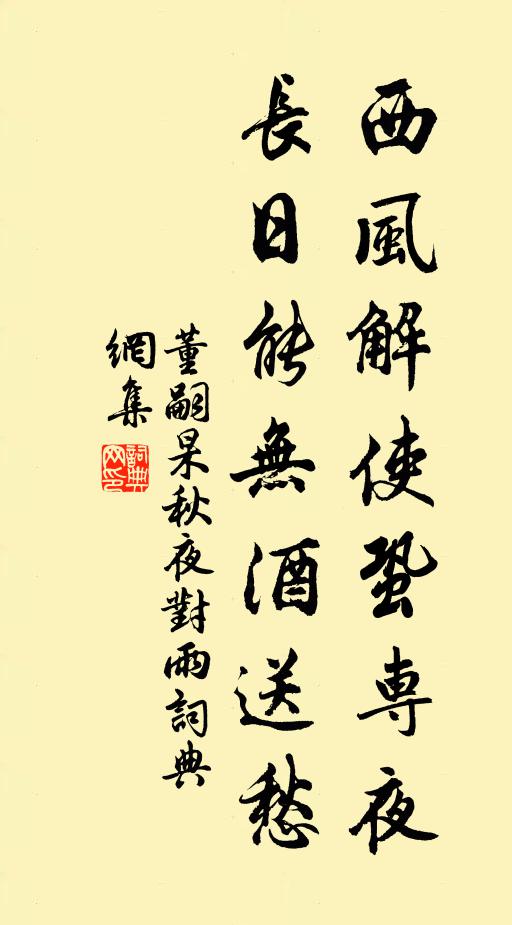 西風解使蛩専夜
長日能無酒送愁
董嗣杲秋夜對雨詞典
網集
詞典
網印